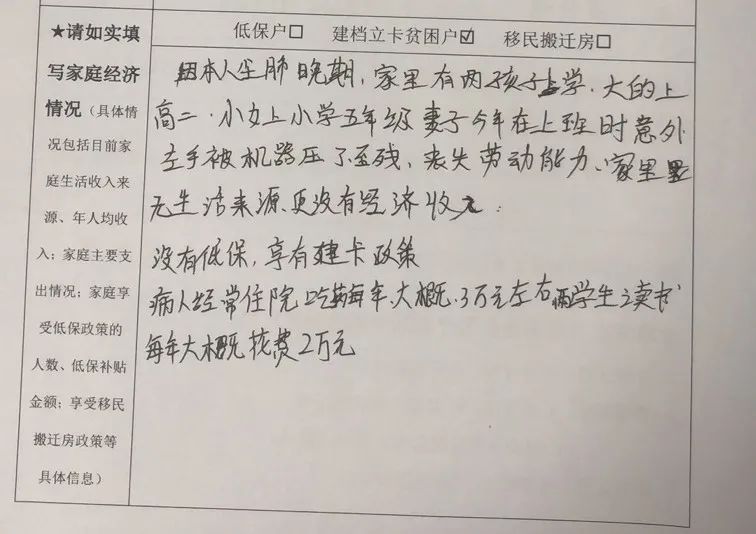 ★请如实填
写家庭经济
情况（具体情
况包括目前家
庭生活收入来
源、年人均收
入；家庭主要支
出情况；家庭享
受低保政策的
人数、低保补贴
金额；享受移民
搬迁房政策等
具体信息）
低保户☐ 建档立卡贫困户☑ 移民搬迁房☐
因本人尘肺晚期，家里有两孩子上学.大的上
高二.小女上小学五年级妻子今年在上班时意外
左手被机器压了至残，丧失劳动能力、家里
无生活来源.更没有经济收入.
没有低保，享有建卡政策
病人经常住院吃药每年.大概.3万元左右两学生读书
每年大概花费2万元